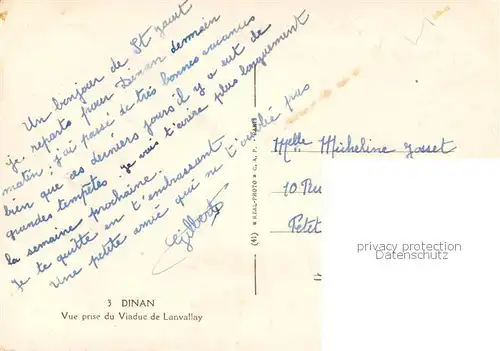 Un bonjour de St Jacut
je reparts pour Dinan demain
matin; j'ai passé de très bonnes vacances
bien que ces derniers jours il y a eut de
grandes tempêtes. je vais t'écrire plus longuement
la semaine prochaine.
Je te quitte en t'embrassant
Une petite amie qui ne t'oublie pas
Gilberte
3 DINAN
Vue prise du Viaduc de Lanvallay
REAL-PHOTO C.A.P. PARIS
Melle Micheline Josset
10 Ru
Petit
privacy protection